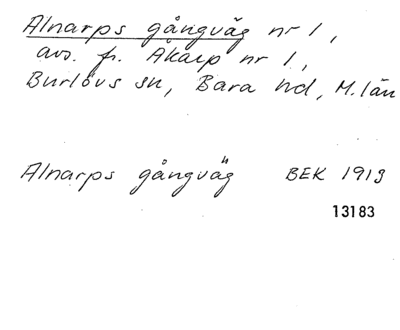 Alnarps gångväg nr 1,
avs. fr. Åkarp nr 1,
Burlövs sn, Bara hd, M. län
Alnarps gångväg BEK 1913
13183